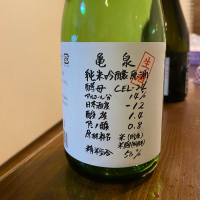 亀泉
生酒
純米吟醸原酒
酵母 CEL-24
アルコール分 14%
日本酒度 -12
酸度 1.4
アミノ酸 0.8
原材料名 米(国産)
米麹(国産米)
精米歩合 50%